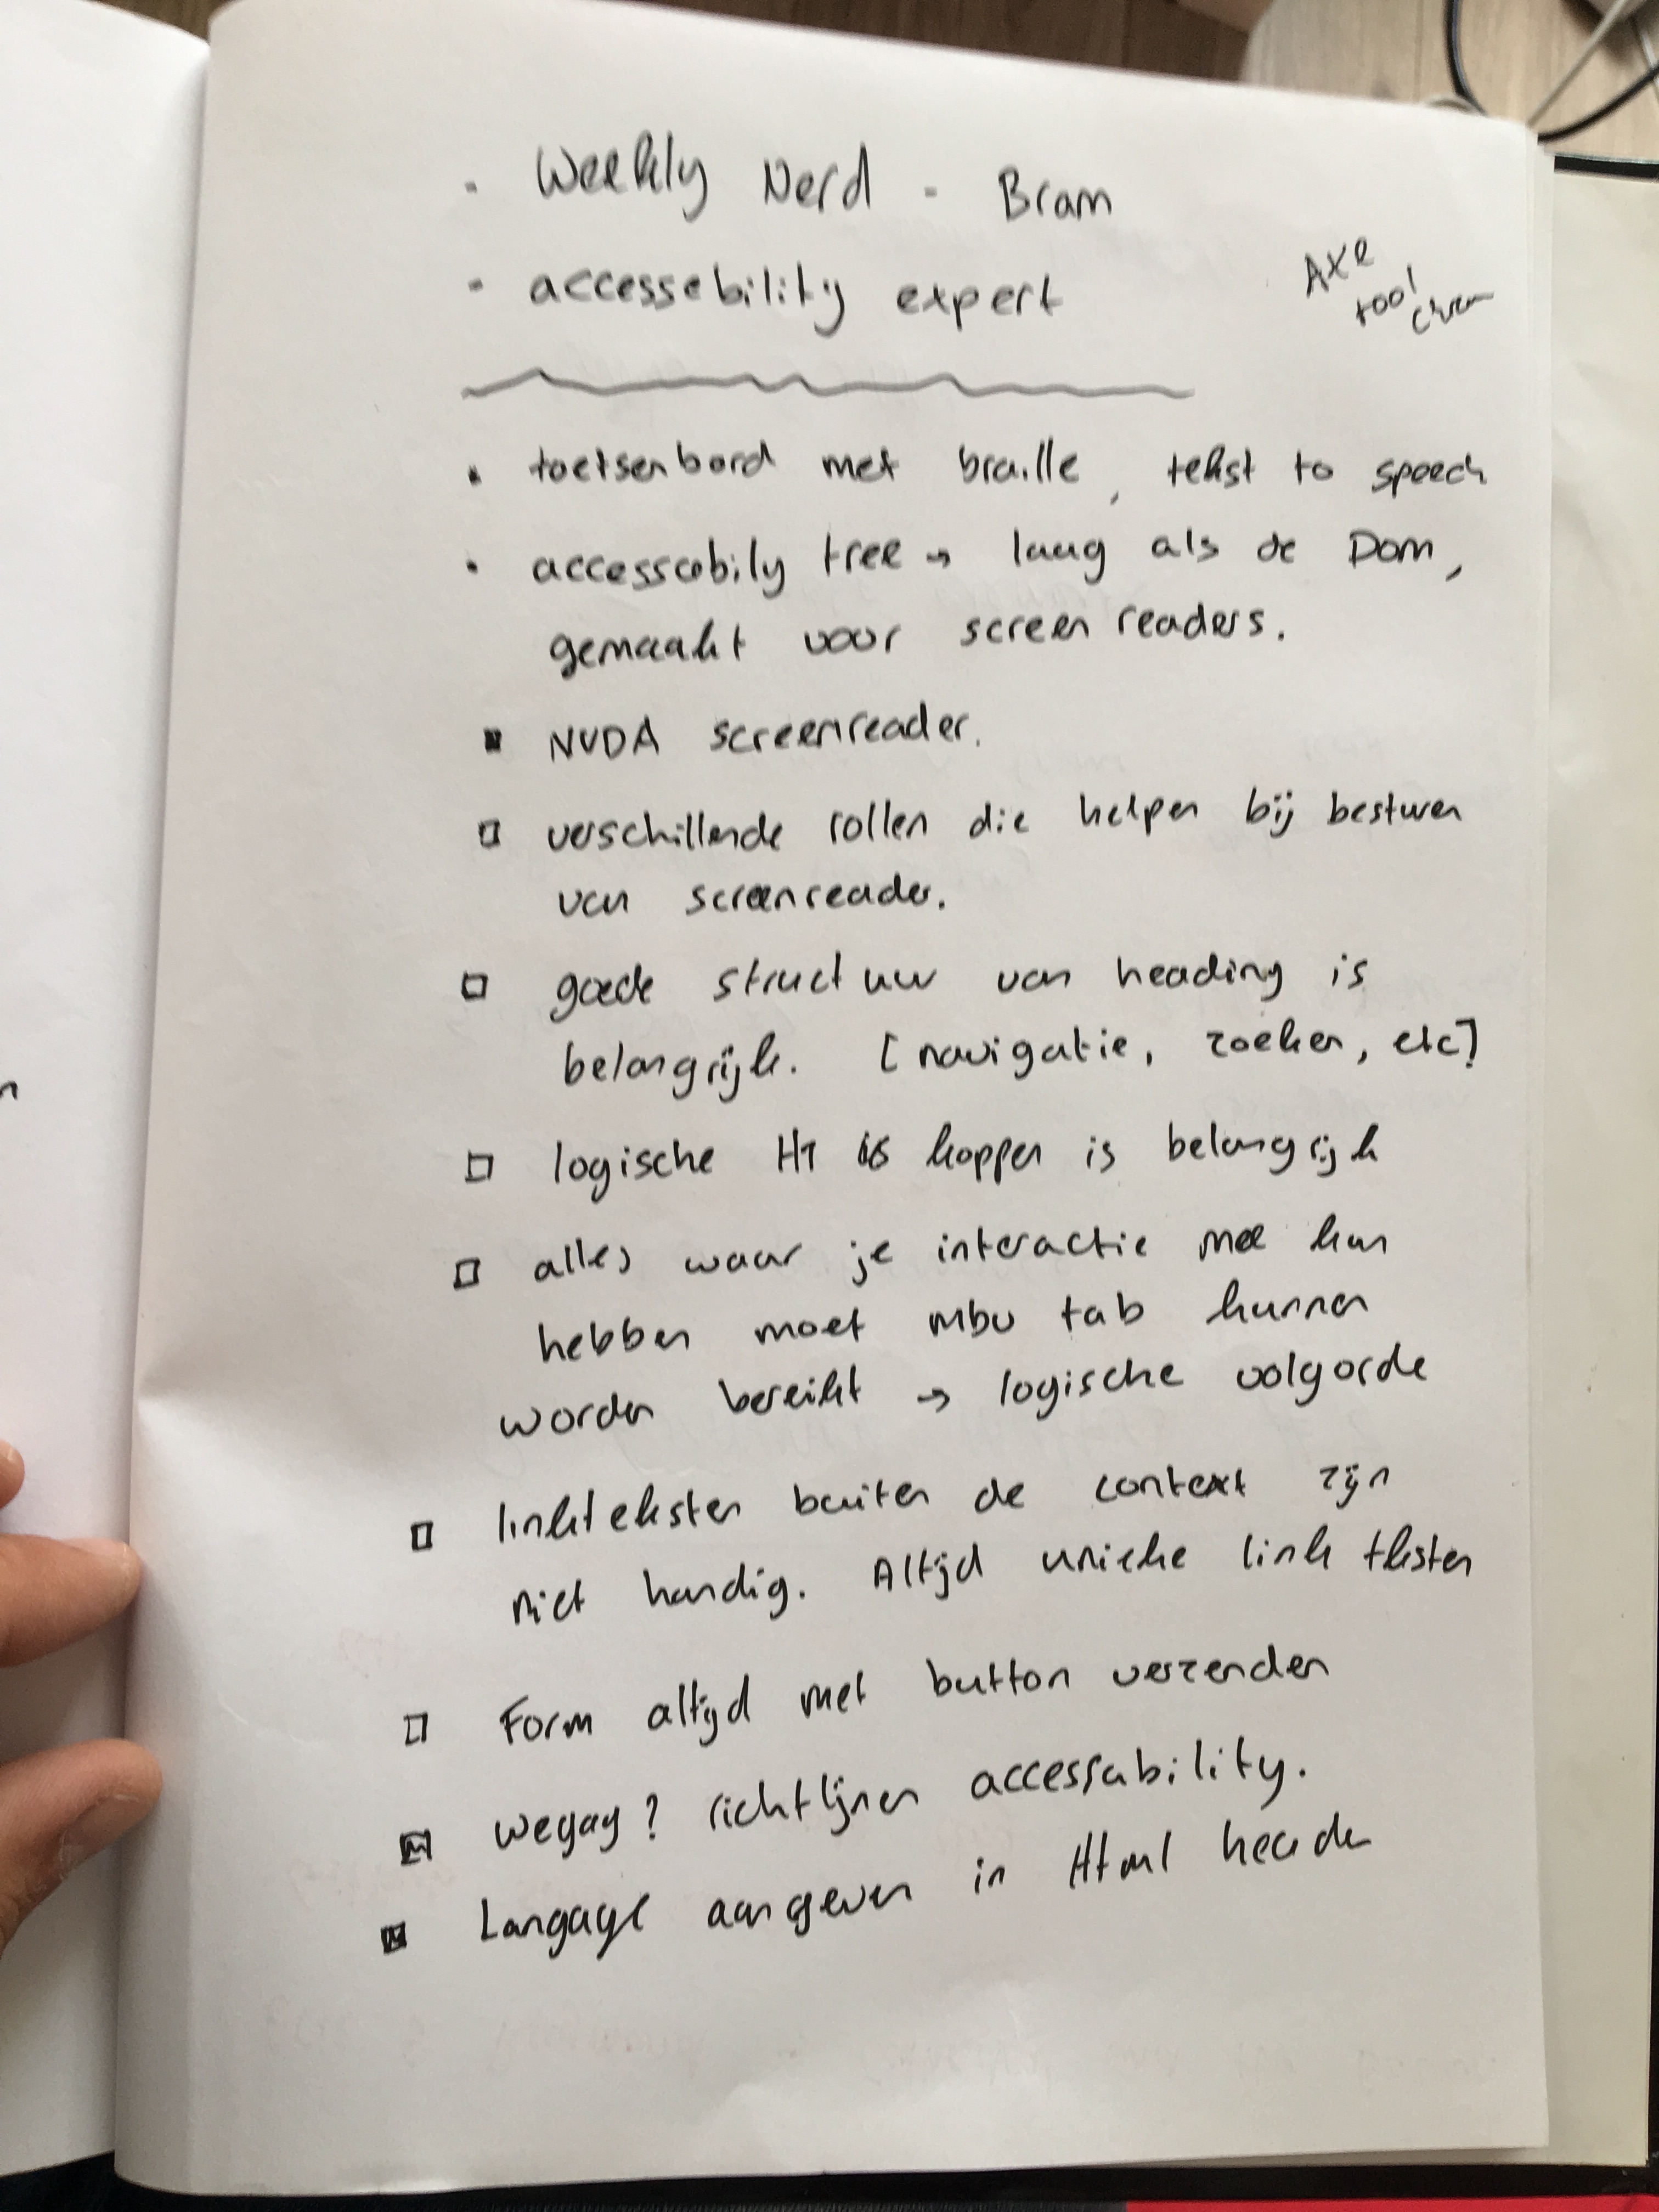 - Weekly Nerd - Bram
- accessebility expert
AXE
tool
• toetsenbord met braille, tekst to speech
• accesscobily tree → laag als de Dom,
gemaakt voor screen readers.
▪ NVDA screenreader.
□ verschillende rollen die helpen bij besturen
van screenreader.
□ goede structuur van heading is
belangrijk. [navigatie, zoeken, etc]
□ logische H1 koppen is belangrijk
□ alles waar je interactie mee kan
hebben moet mbv tab kunnen
worden bereikt → logische volgorde
□ linkteksten buiten de context zijn
niet handig. Altijd unieke link tksten
□ Form altijd met button verzenden
▪ wegag? richtlijnen accessability.
▪ Langage aangeven in Html header
n